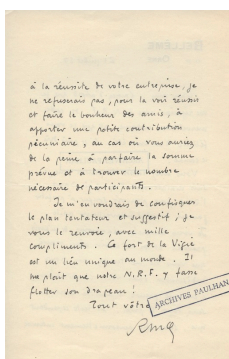 à la réussite de votre entreprise, je
ne refuserais pas, pour la voir réussir
et faire le bonheur des amis, à
apporter une petite contribution
pécuniaire, au cas où vous auriez
de la peine à parfaire la somme
prévue et à trouver le nombre
nécessaire de participants.
Je m'en voudrais de confisquer
le plan tentateur et suggestif ; je
vous le renvoie, avec mille
compliments. Ce fort de la Vigie
est un lieu unique au monde. Il
me plaît que notre N.R.F. y fasse
flotter son drapeau !
Tout vôtre
ARCHIVES PAULHAN